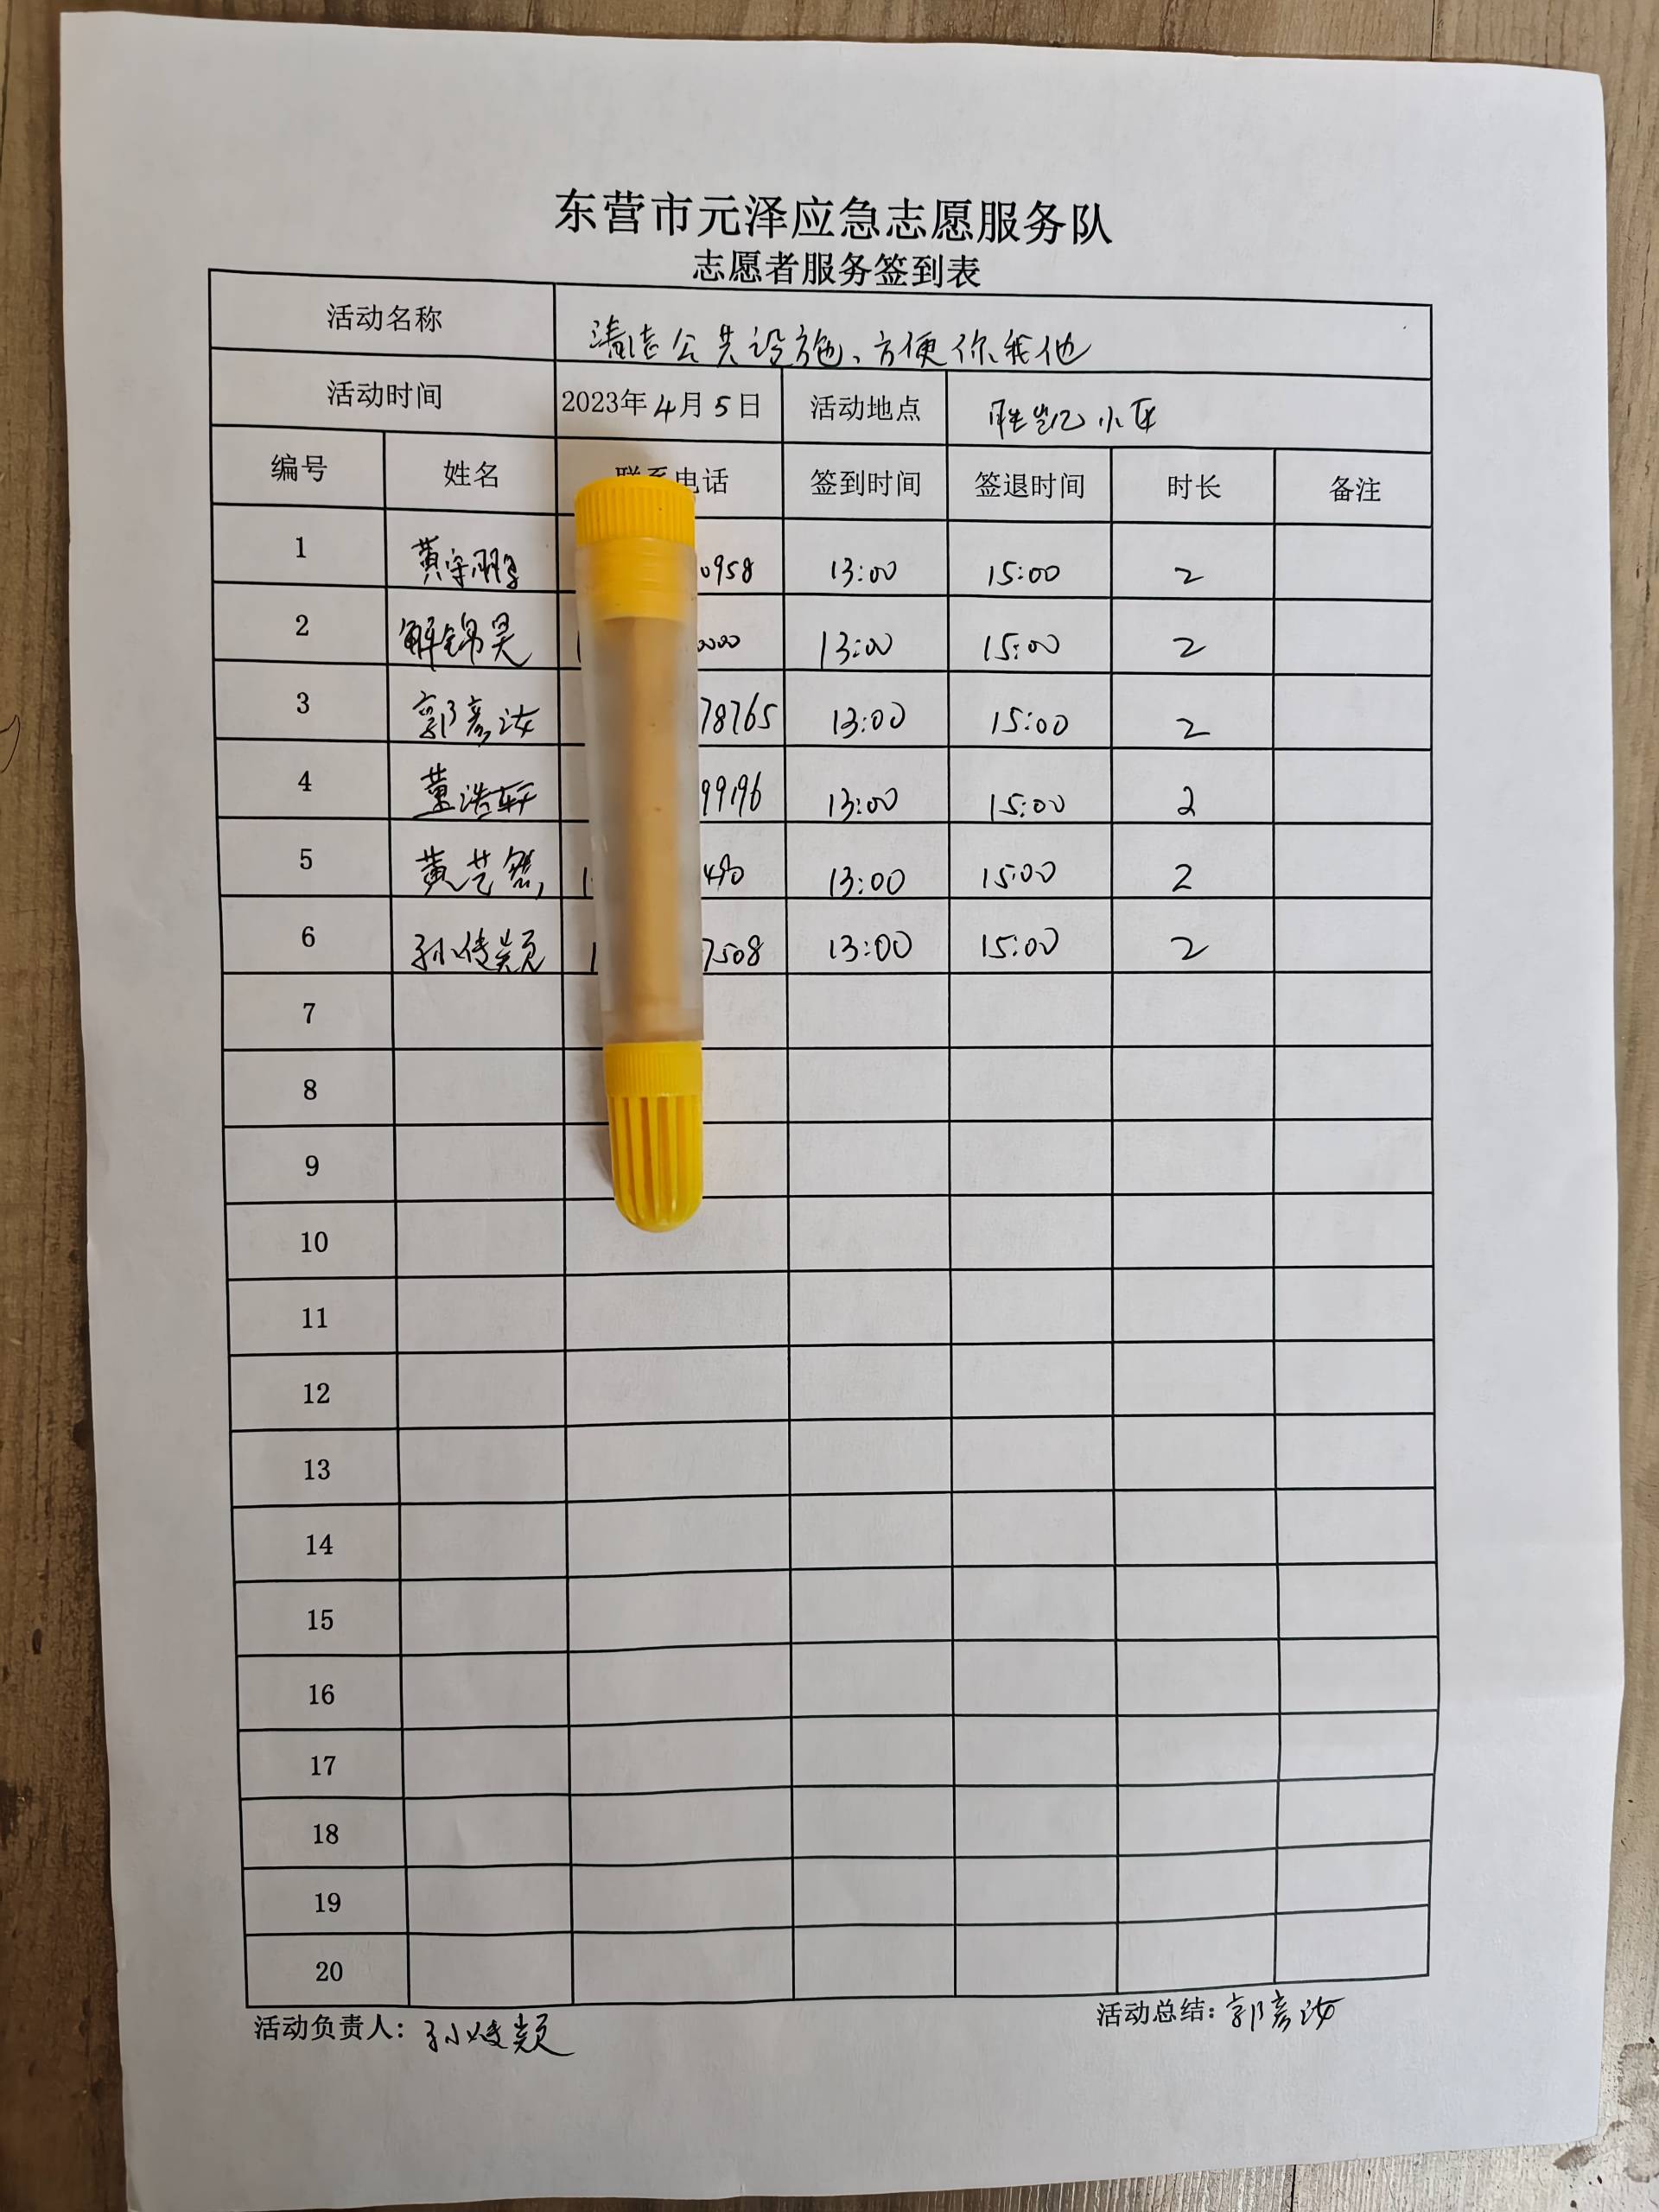 东营市元泽应急志愿服务队
志愿者服务签到表
活动名称 清洁公共设施、方便你我他
活动时间 2023年4月5日 活动地点 胜凯小区
编号 姓名 联系电话 签到时间 签退时间 时长 备注
1 黄宇鹏 0958 13:00 15:00 2
2 解锦昊 0000 13:00 15:00 2
3 郭彦汝 78765 13:00 15:00 2
4 董浩轩 99196 13:00 15:00 2
5 黄艺 490 13:00 15:00 2
6 孙 7508 13:00 15:00 2
7
8
9
10
11
12
13
14
15
16
17
18
19
20
活动负责人: 孙 活动总结: 郭彦汝